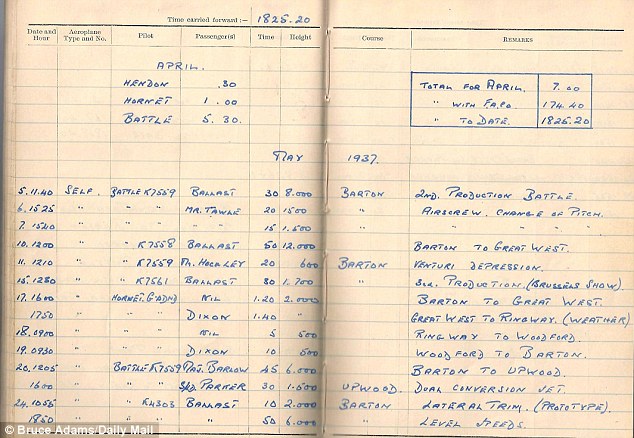 Time carried forward :— 1825.20
Date and Hour Aeroplane Type and No. Pilot Passenger(s) Time Height Course REMARKS
APRIL.
HENDON .30
HORNET 1.00
BATTLE 5.30.
TOTAL FOR APRIL. 7.00
" WITH F.A.Co. 174.40
" TO DATE. 1825.20
MAY 1937.
5.11.40 SELF. BATTLE K7559 BALLAST 30 8.000 BARTON 2ND. PRODUCTION BATTLE.
6.1525 " " " MR. TAWLE 20 1500 " AIRSCREW. CHANGE OF PITCH.
7.1540 " " " " 15 1.500 " " " "
10.1200 " " K7558 BALLAST 50 12.000 BARTON TO GREAT WEST.
11.1210 " " K7559 HOCKLEY 20 600 BARTON VENTURI DEPRESSION.
15.1230 " " K7561 BALLAST 30 1.700 " 3RD. PRODUCTION. (BRUSSELS SHOW)
17.1600 " HORNET. NIL 1.20 2.000 BARTON TO GREAT WEST.
1750 " " " DIXON 1.40 " GREAT WEST TO RINGWAY. (WEATHER)
18.0900 " " " NIL 5 500 RINGWAY TO WOODFORD.
19.0930 " " " DIXON 10 500 WOODFORD TO BARTON.
20.1205 " BATTLE K7559 BARLOW 45 6.000 BARTON TO UPWOOD.
1600 " " " S/LD. PARKER 30 1.500 UPWOOD. DUAL CONVERSION SET.
24.1055 " " K4303 BALLAST 10 2.000 BARTON LATERAL TRIM. (PROTOTYPE)
1850 " " " " 50 6.000 " LEVEL SPEEDS.
© Bruce Adams/Daily Mail